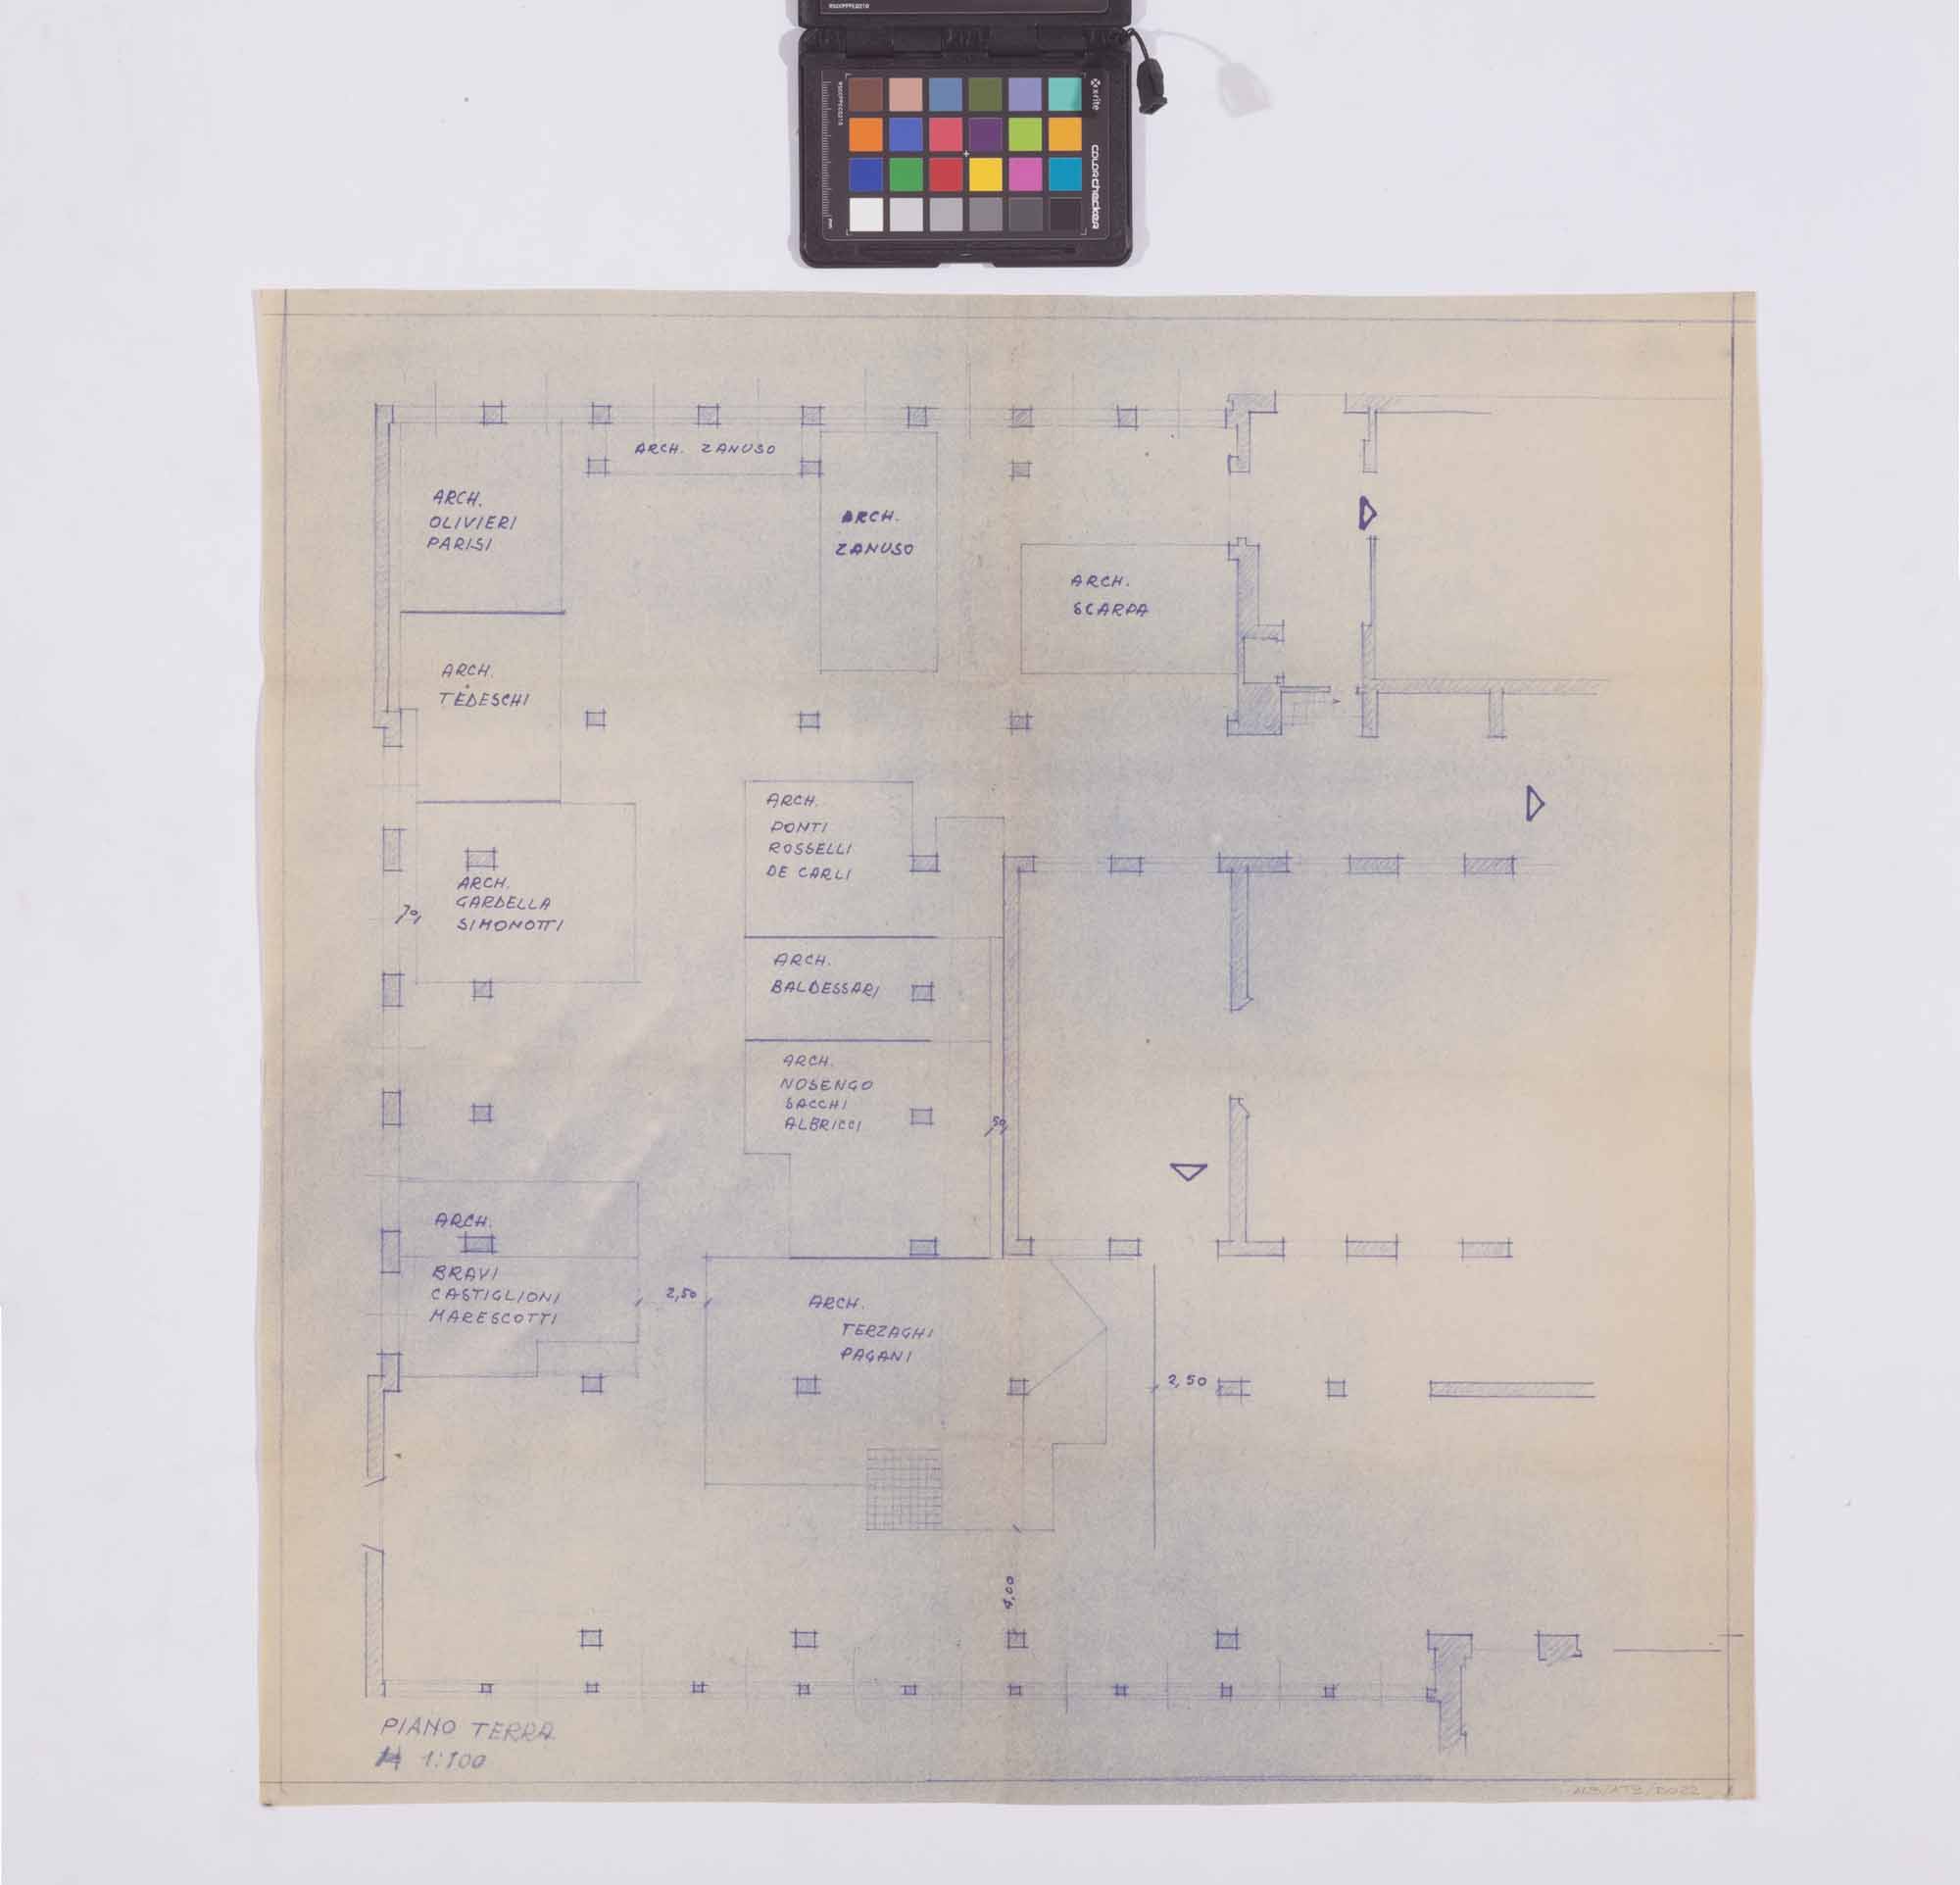 x-rite
colorchecker
mm
ARCH. ZANUSO
ARCH.
OLIVIERI
PARISI
ARCH.
ZANUSO
ARCH.
SCARPA
ARCH.
TEDESCHI
ARCH.
PONTI
ROSSELLI
DE CARLI
ARCH.
GARDELLA
SIMONOTTI
70
ARCH.
BALDESSARI
ARCH.
NOSENGO
SACCHI
ALBRICCI
50
ARCH.
BRAVI
CASTIGLIONI
MARESCOTTI
2,50
ARCH.
TERZAGHI
PAGANI
2,50
4,00
PIANO TERRA
1:100